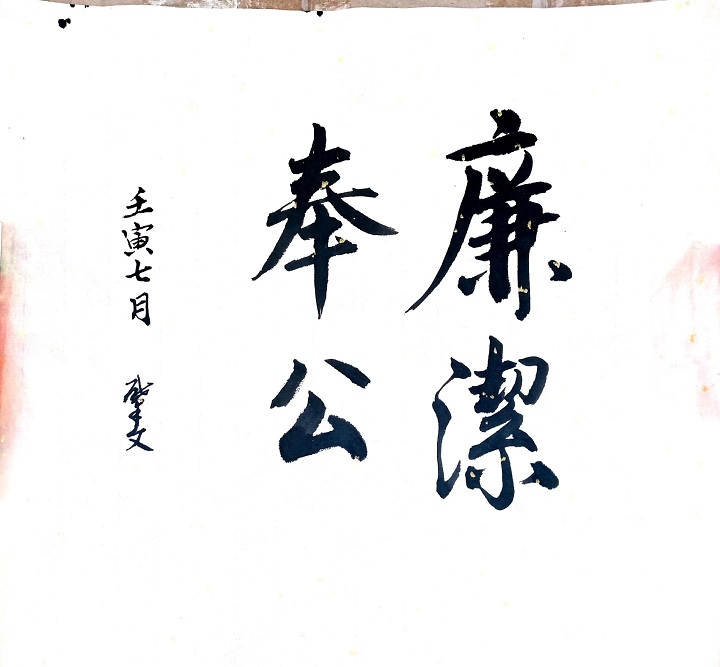 廉潔
奉公
壬寅七月
文